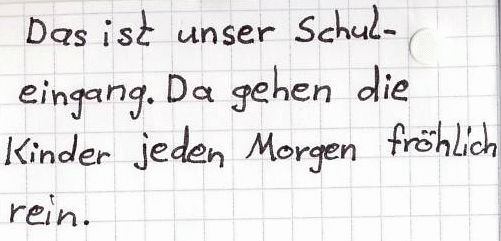 Das ist unser Schul-
eingang. Da gehen die
Kinder jeden Morgen fröhlich
rein.